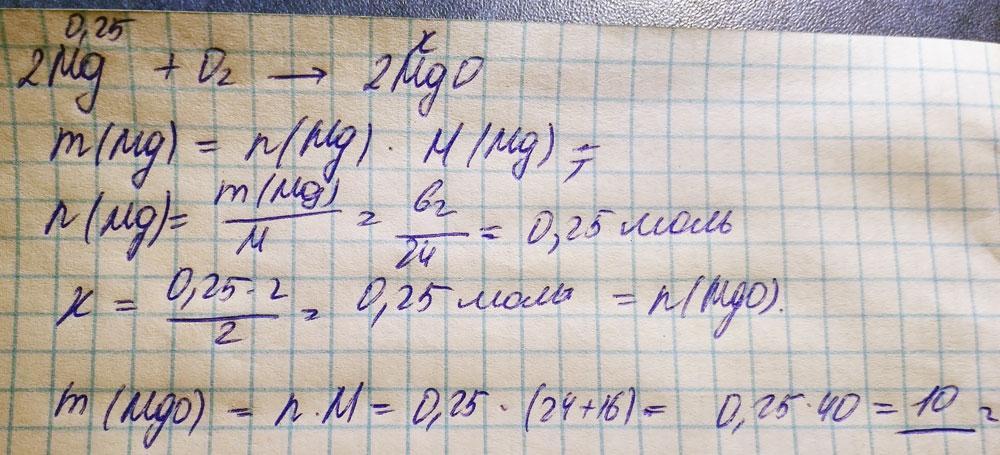 0,25 x
2Mg + O2 → 2MgO
m(Mg) = n(Mg) · M(Mg) =;
n(Mg) = m(Mg)/M = 6г/24 = 0,25 моль
x = 0,25·2/2 = 0,25 моль = n(MgO).
m(MgO) = n·M = 0,25 · (24+16) = 0,25·40 = 10 г